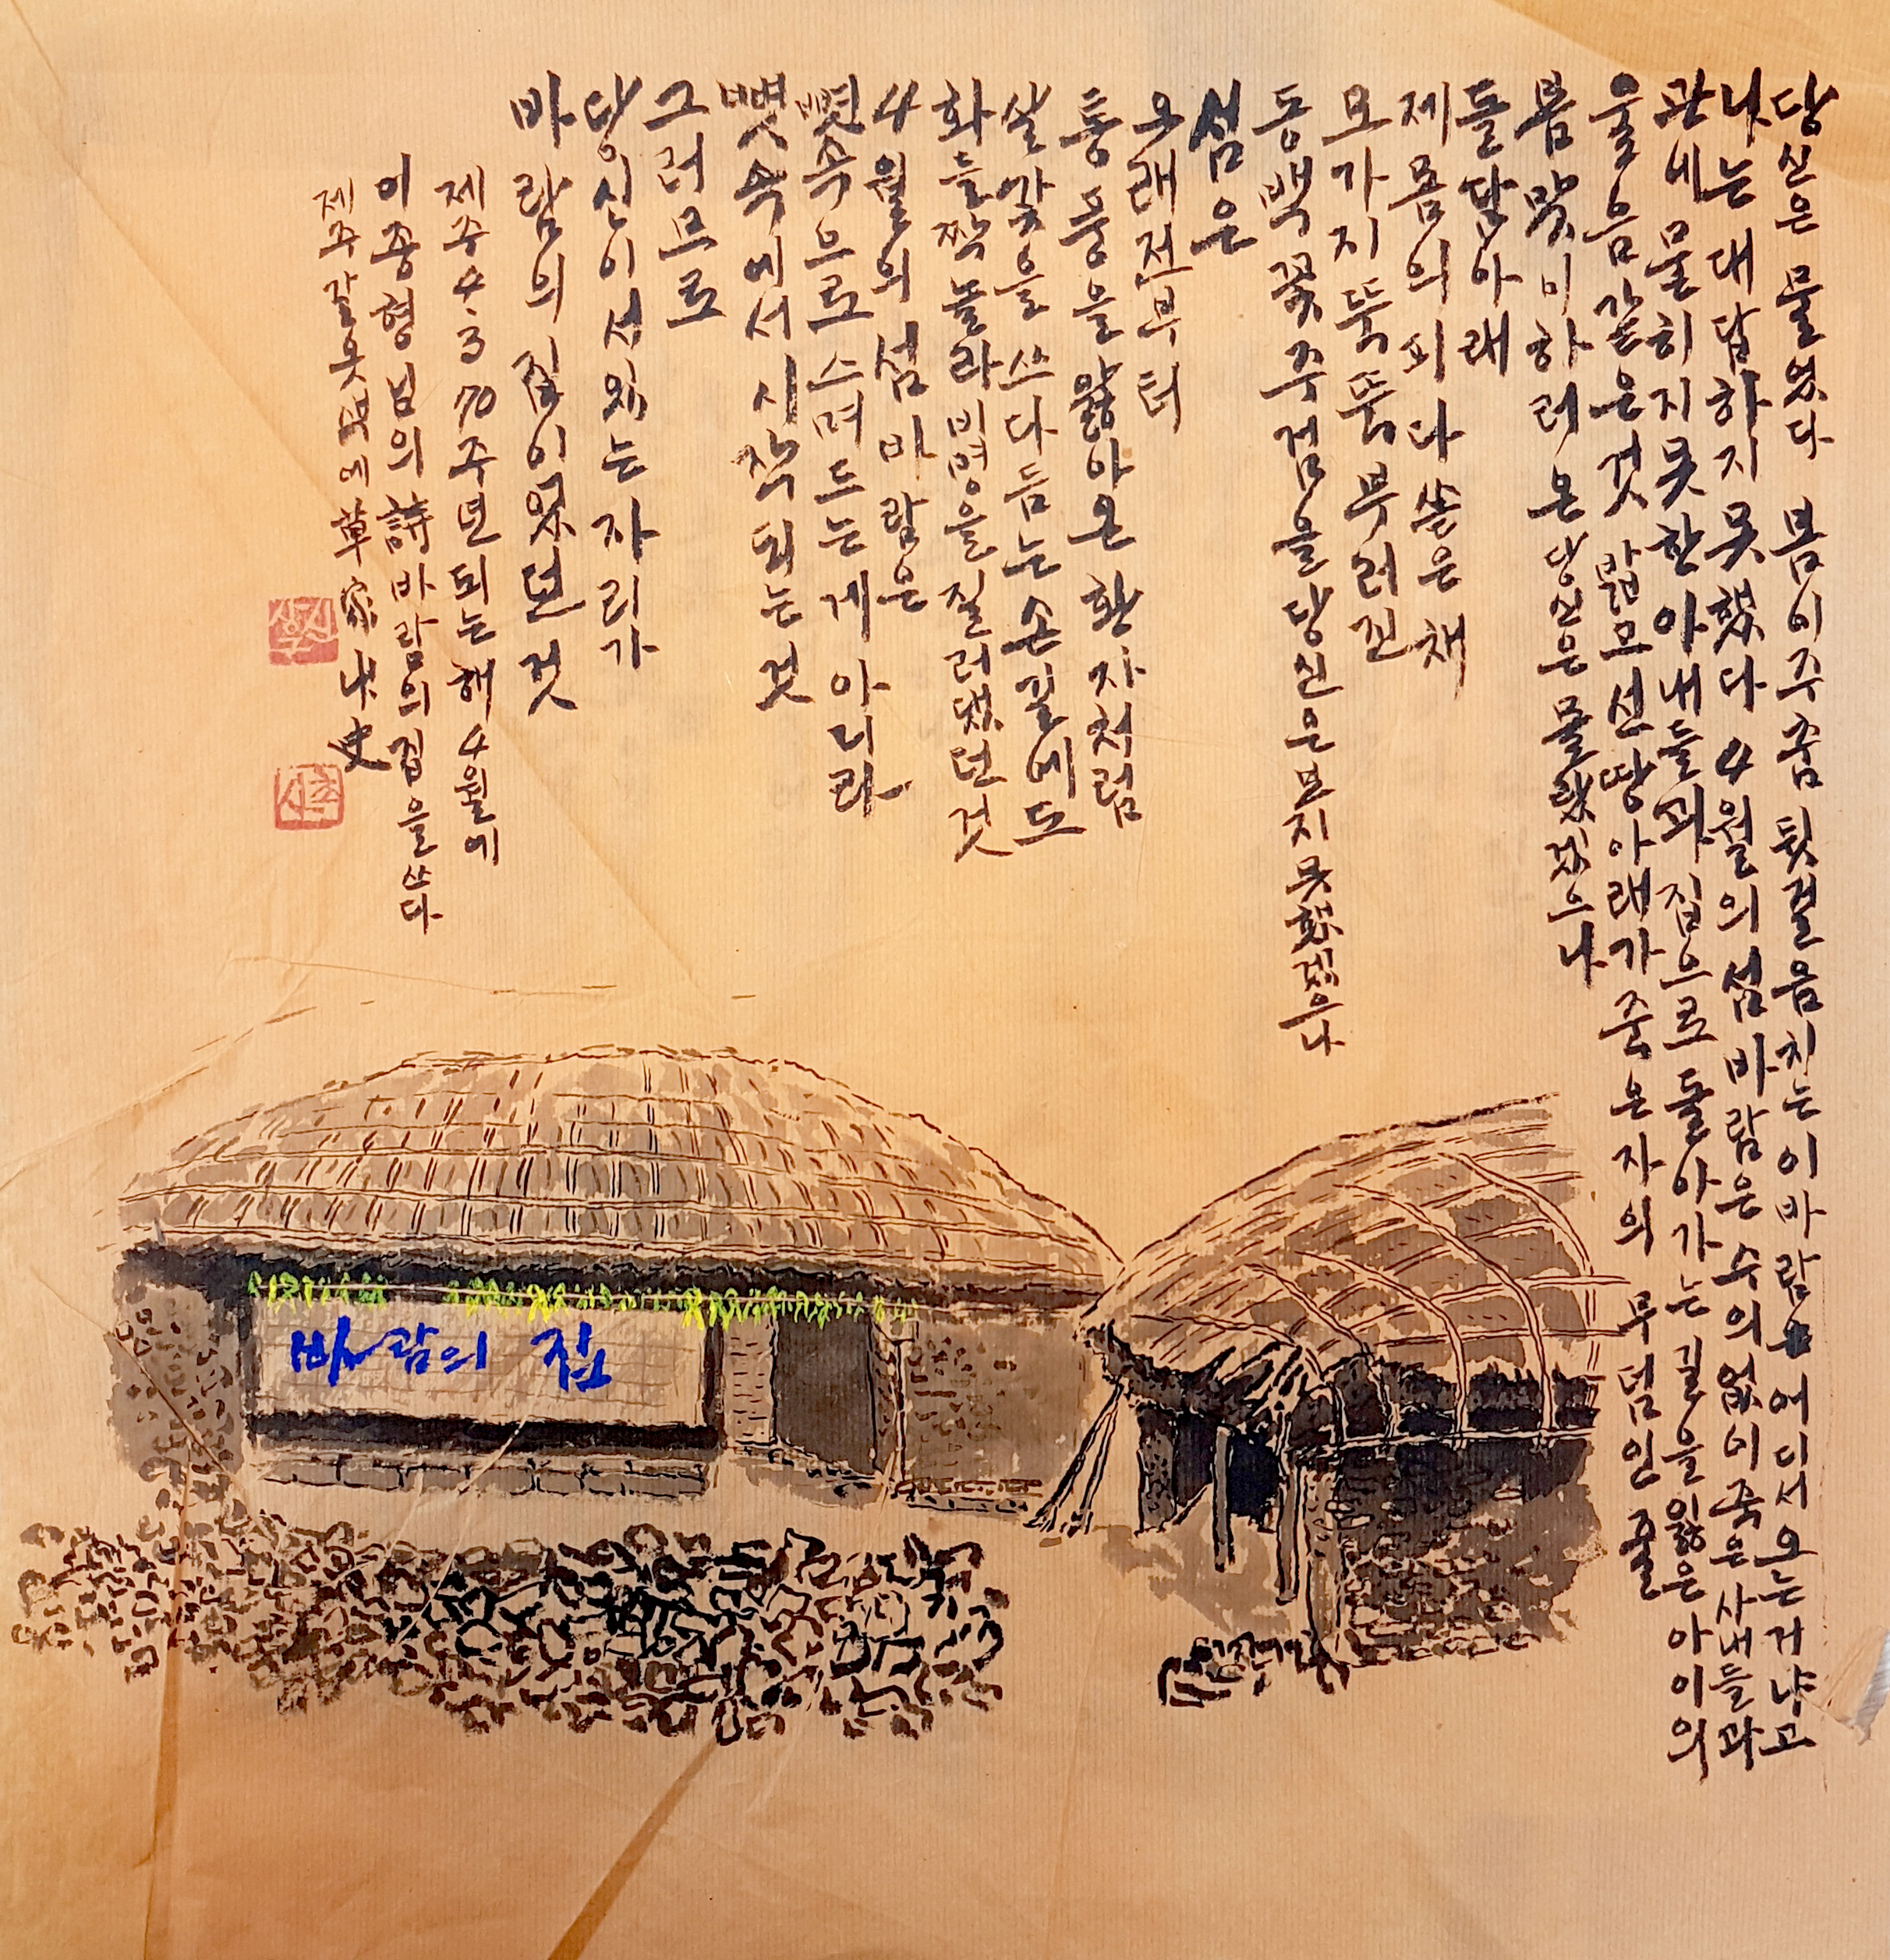 당신은 물었다 봄이 주춤 뒷걸음치는 이 바람 어디서 오는 거냐고
나는 대답하지 못했다 4월의 섬 바람은 수의 없이 죽은 사내들과
관에 묻히지 못한 아내들과 집으로 돌아가는 길을 잃은 아이의
울음 같은 것 밟모 선 땅 아래가 죽은 자의 무덤인 줄
봄 맞이하러 온 당신은 몰랐겠으나
돌담 아래
제 몸의 피 다 쏟은 채
모가지 뚝뚝 부러진
동백꽃 주검을 당신은 보지 못했겠으나
섬은
오래전부터
통풍을 앓아온 환자처럼
살갗을 쓰다듬는 손길에도
화들짝 놀라 비명을 질러댔던 것
4월의 섬 바람은
뼛속으로 스며드는 게 아니라
뼛속에서 시작되는 것
그러므로
당신이 서있는 자리가
바람의 집이었던 것
제주 4·3 70주년 되는 해 4월에
이종형님의 詩 바람의 집을 쓰다
제주 갈옷 벽에 草家 史
바람의 집